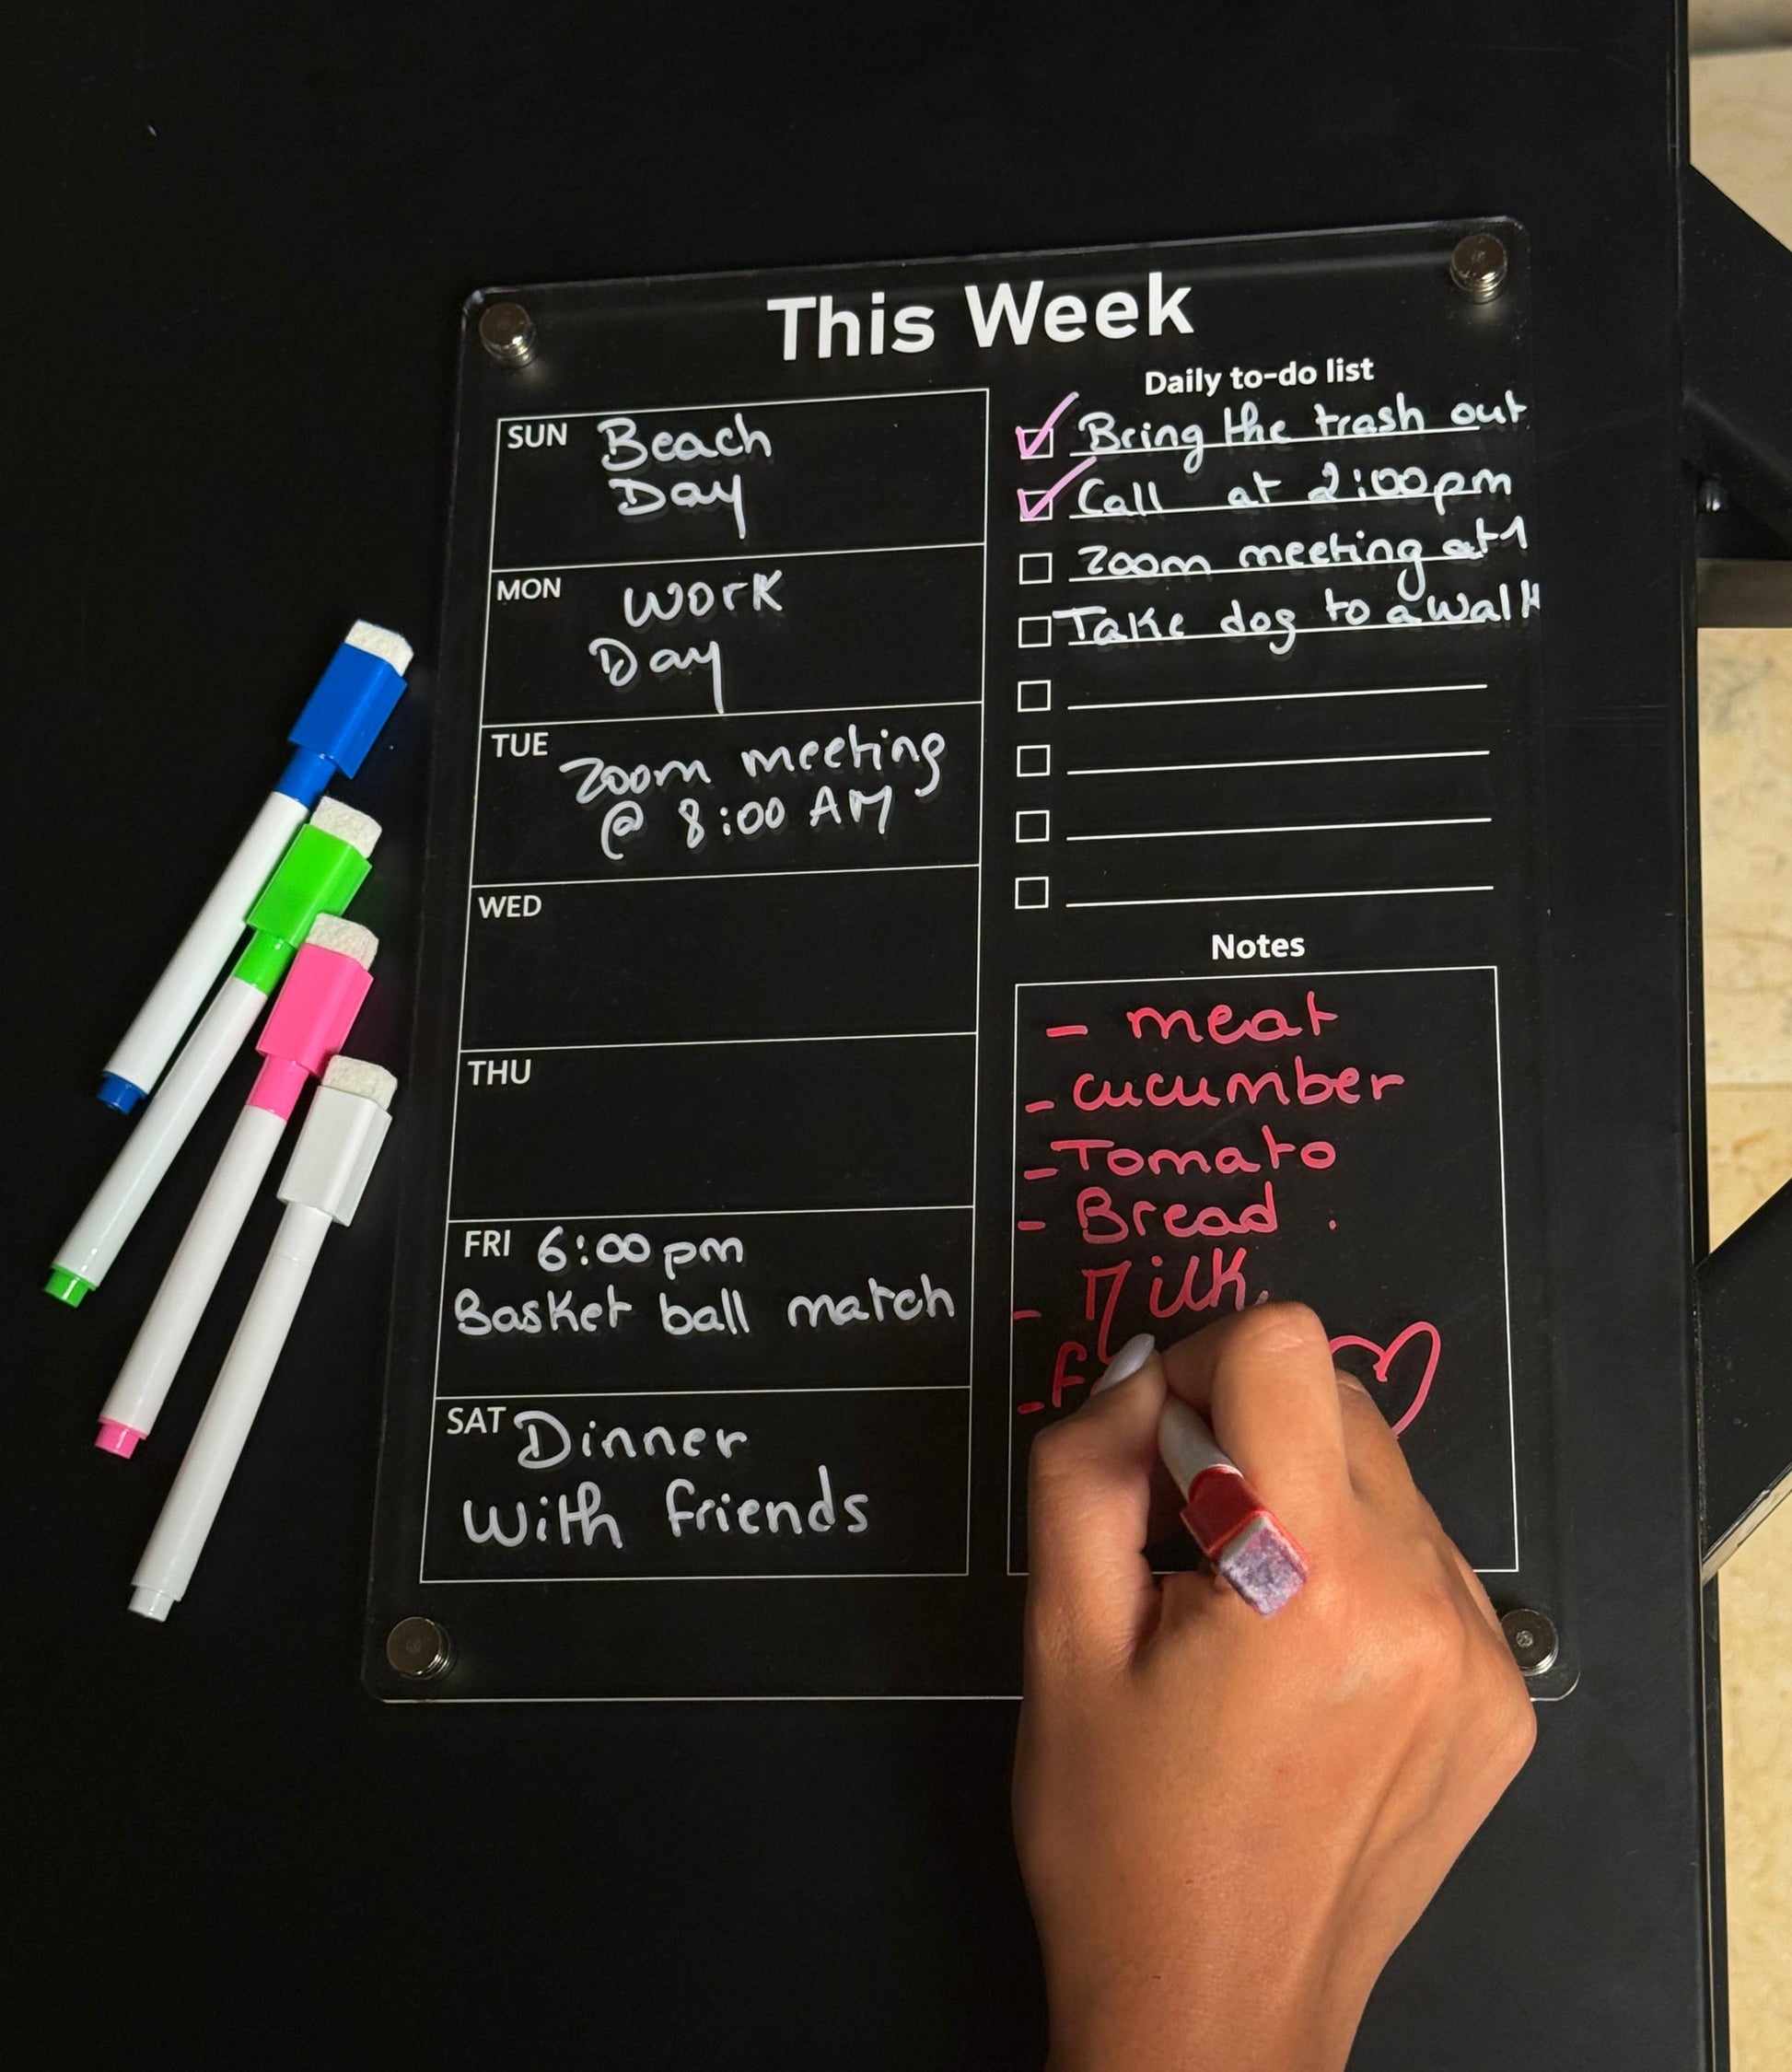 This Week
SUN Beach
Day
MON Work
Day
TUE Zoom meeting
@ 8:00 AM
WED
THU
FRI 6:00 pm
Basket ball match
SAT Dinner
With friends
Daily to-do list
Bring the trash out
Call at 2:00pm
Zoom meeting at 1
Take dog to a walk
Notes
- meat
- cucumber
- Tomato
- Bread .
- Milk